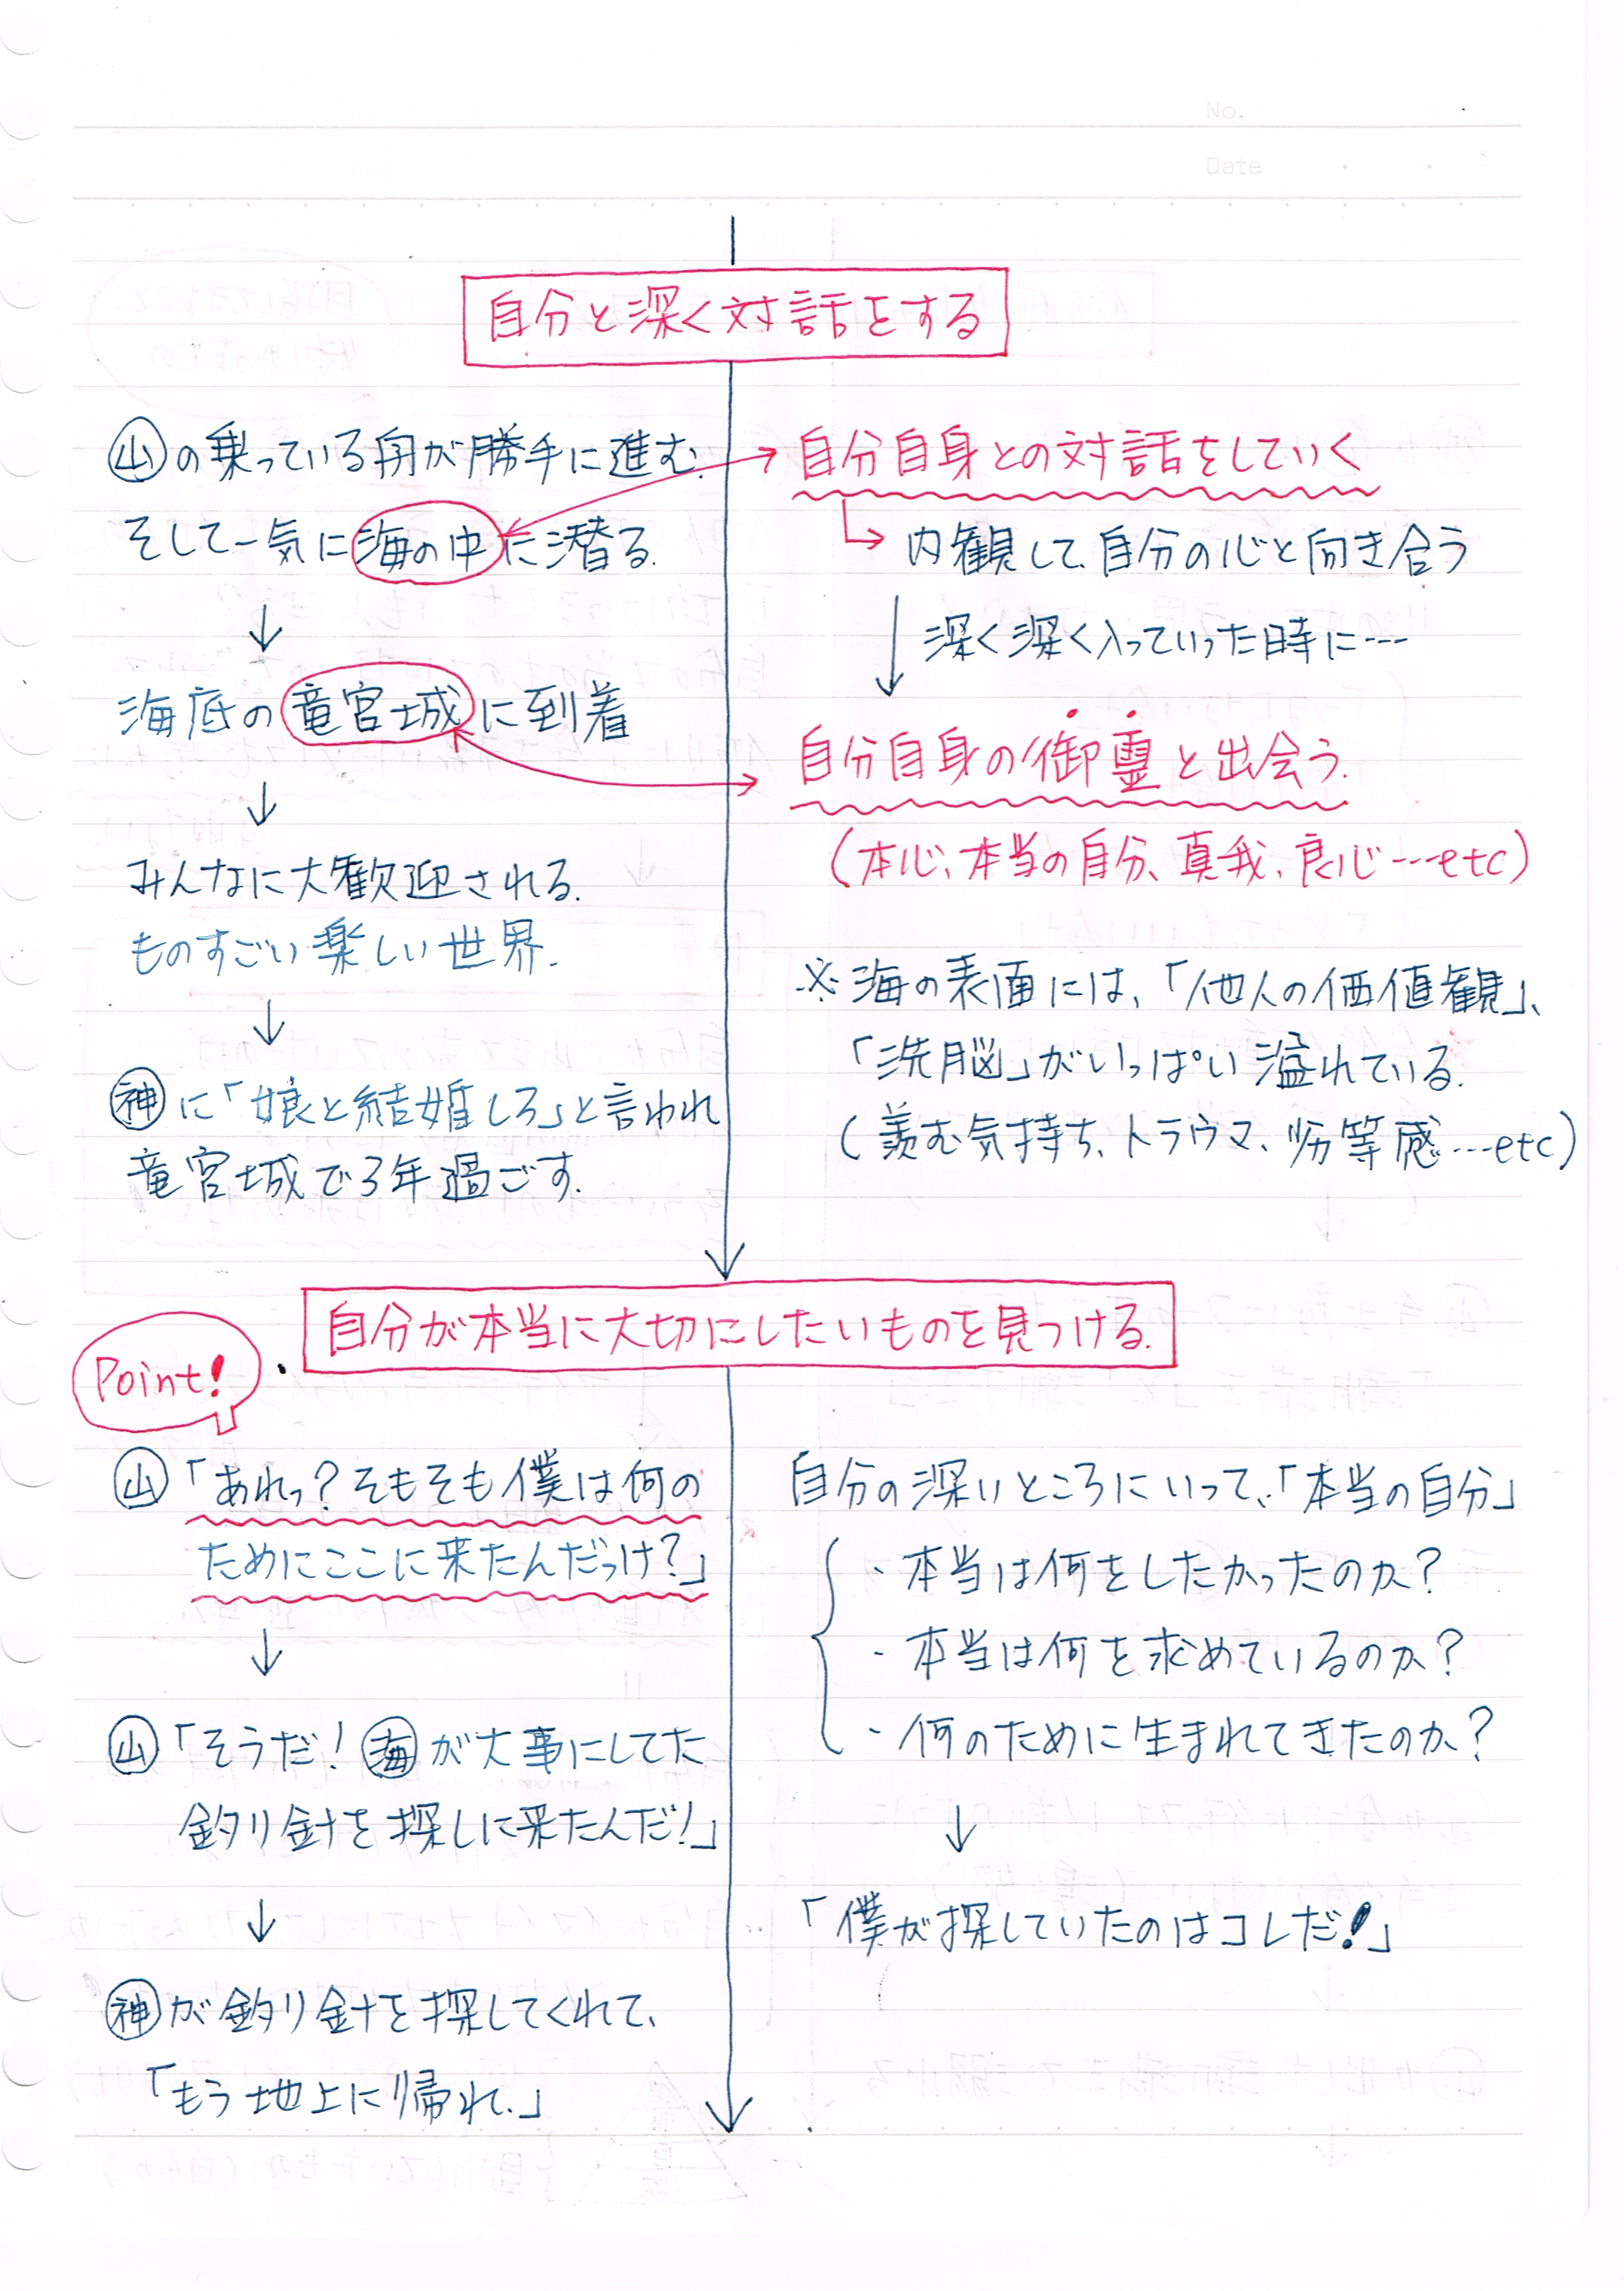 No.
Date
自分と深く対話をする
㊤の乗っている舟が勝手に進む.
そして一気に海の中に潜る.
↓
海底の竜宮城に到着
↓
みんなに大歓迎される.
ものすごい楽しい世界.
↓
神に「娘と結婚しろ」と言われ
竜宮城で3年過ごす.
自分自身との対話をしていく
内観して、自分の心と向き合う
↓ 深く深く入っていった時に---
自分自身の御霊と出会う.
(本心、本当の自分、真我、良心---etc)
※海の表面には、「他人の価値観」、
「洗脳」がいっぱい溢れている.
(羨む気持ち、トラウマ、劣等感---etc)
自分が本当に大切にしたいものを見つける.
Point!
山「あれっ?そもそも僕は何の
ためにここに来たんだっけ?」
↓
山「そうだ!海が大事にしてた
釣り針を探しに来たんだ!」
↓
神が釣り針を探してくれて、
「もう地上に帰れ.」
自分の深いところにいって、「本当の自分」
・本当は何をしたかったのか?
・本当は何を求めているのか?
・何のために生まれてきたのか?
↓
「僕が探していたのはコレだ!」